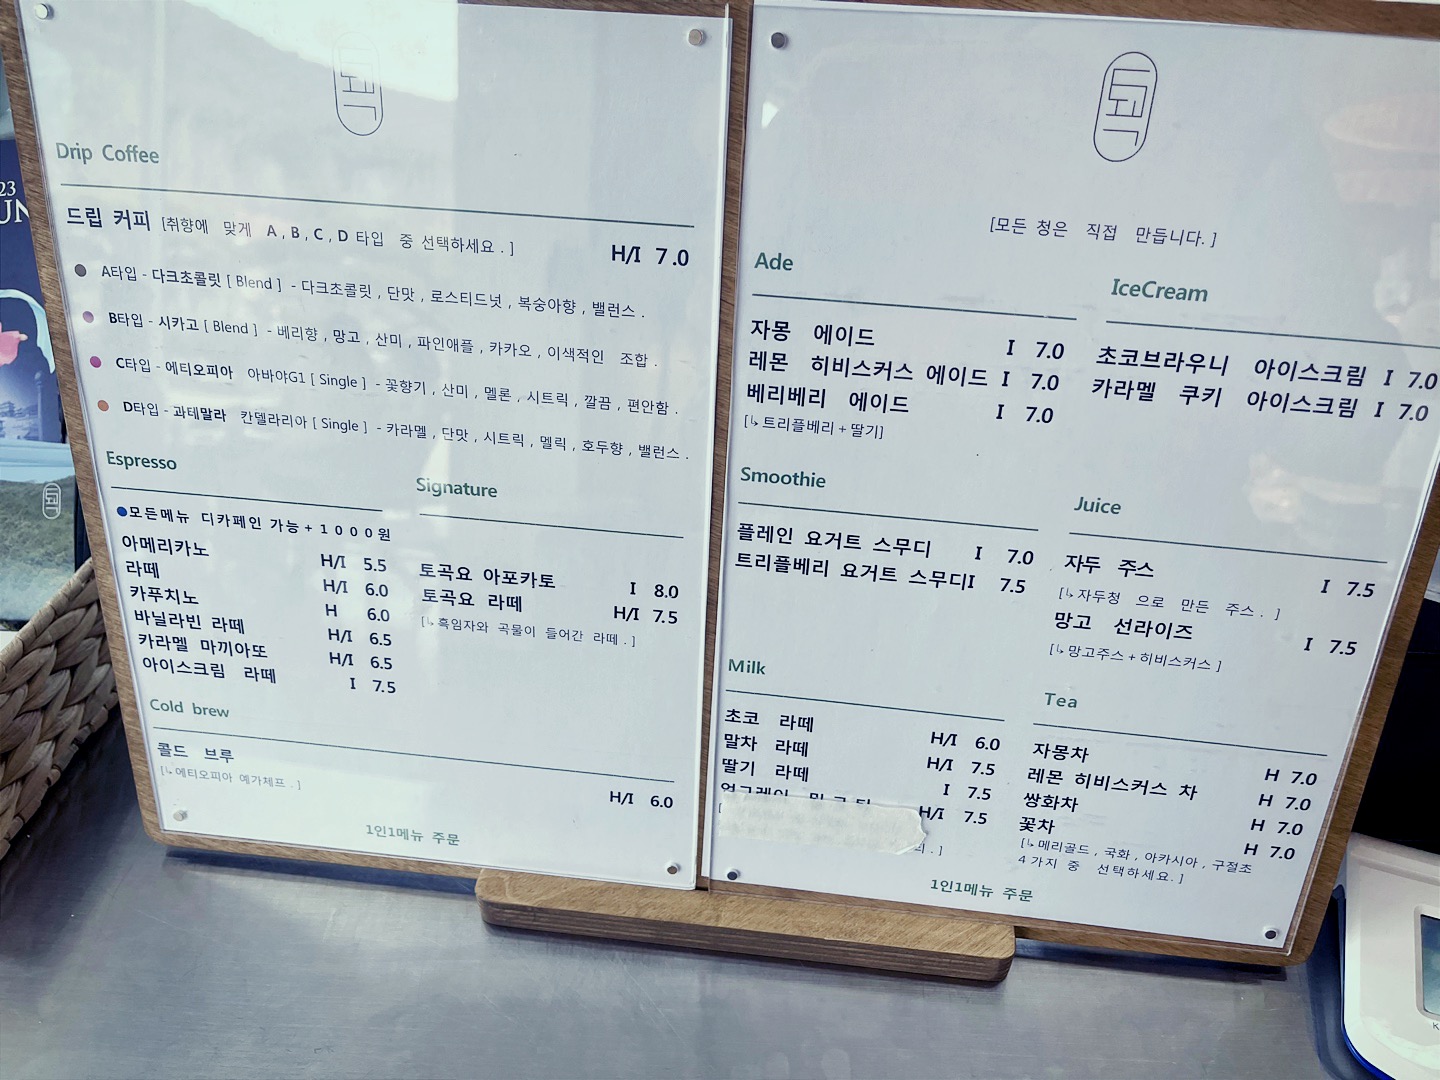 토곡
Drip Coffee
드립 커피 [취향에 맞게 A , B , C , D 타입 중 선택하세요 . ] H/I 7.0
A타입 - 다크초콜릿 [ Blend ] - 다크초콜릿 , 단맛 , 로스티드넛 , 복숭아향 , 밸런스 .
B타입 - 시카고 [ Blend ] - 베리향 , 망고 , 산미 , 파인애플 , 카카오 , 이색적인 조합 .
C타입 - 에티오피아 아바야G1 [ Single ] - 꽃향기 , 산미 , 멜론 , 시트릭 , 깔끔 , 편안함 .
D타입 - 과테말라 칸델라리아 [ Single ] - 카라멜 , 단맛 , 시트릭 , 멜릭 , 호두향 , 밸런스 .
Espresso
●모든메뉴 디카페인 가능 + 1 0 0 0 원
아메리카노 H/I 5.5
라떼 H/I 6.0
카푸치노 H 6.0
바닐라빈 라떼 H/I 6.5
카라멜 마끼아또 H/I 6.5
아이스크림 라떼 I 7.5
Signature
토곡요 아포카토 I 8.0
토곡요 라떼 H/I 7.5
[↳흑임자와 곡물이 들어간 라떼 . ]
Cold brew
콜드 브루 H/I 6.0
[↳에티오피아 예가체프 . ]
1인1메뉴 주문
토곡
[모든 청은 직접 만듭니다. ]
Ade
자몽 에이드 I 7.0
레몬 히비스커스 에이드 I 7.0
베리베리 에이드 I 7.0
[↳트리플베리 + 딸기]
IceCream
초코브라우니 아이스크림 I 7.0
카라멜 쿠키 아이스크림 I 7.0
Smoothie
플레인 요거트 스무디 I 7.0
트리플베리 요거트 스무디I 7.5
Juice
자두 주스 I 7.5
[↳자두청 으로 만든 주스 . ]
망고 선라이즈 I 7.5
[↳망고주스 + 히비스커스 ]
Milk
초코 라떼 H/I 6.0
말차 라떼 H/I 7.5
딸기 라떼 I 7.5
H/I 7.5
Tea
자몽차 H 7.0
레몬 히비스커스 차 H 7.0
쌍화차 H 7.0
꽃차 H 7.0
[↳메리골드 , 국화 , 아카시아 , 구절초
4 가지 중 선택하세요. ]
1인1메뉴 주문
23
UN
토곡